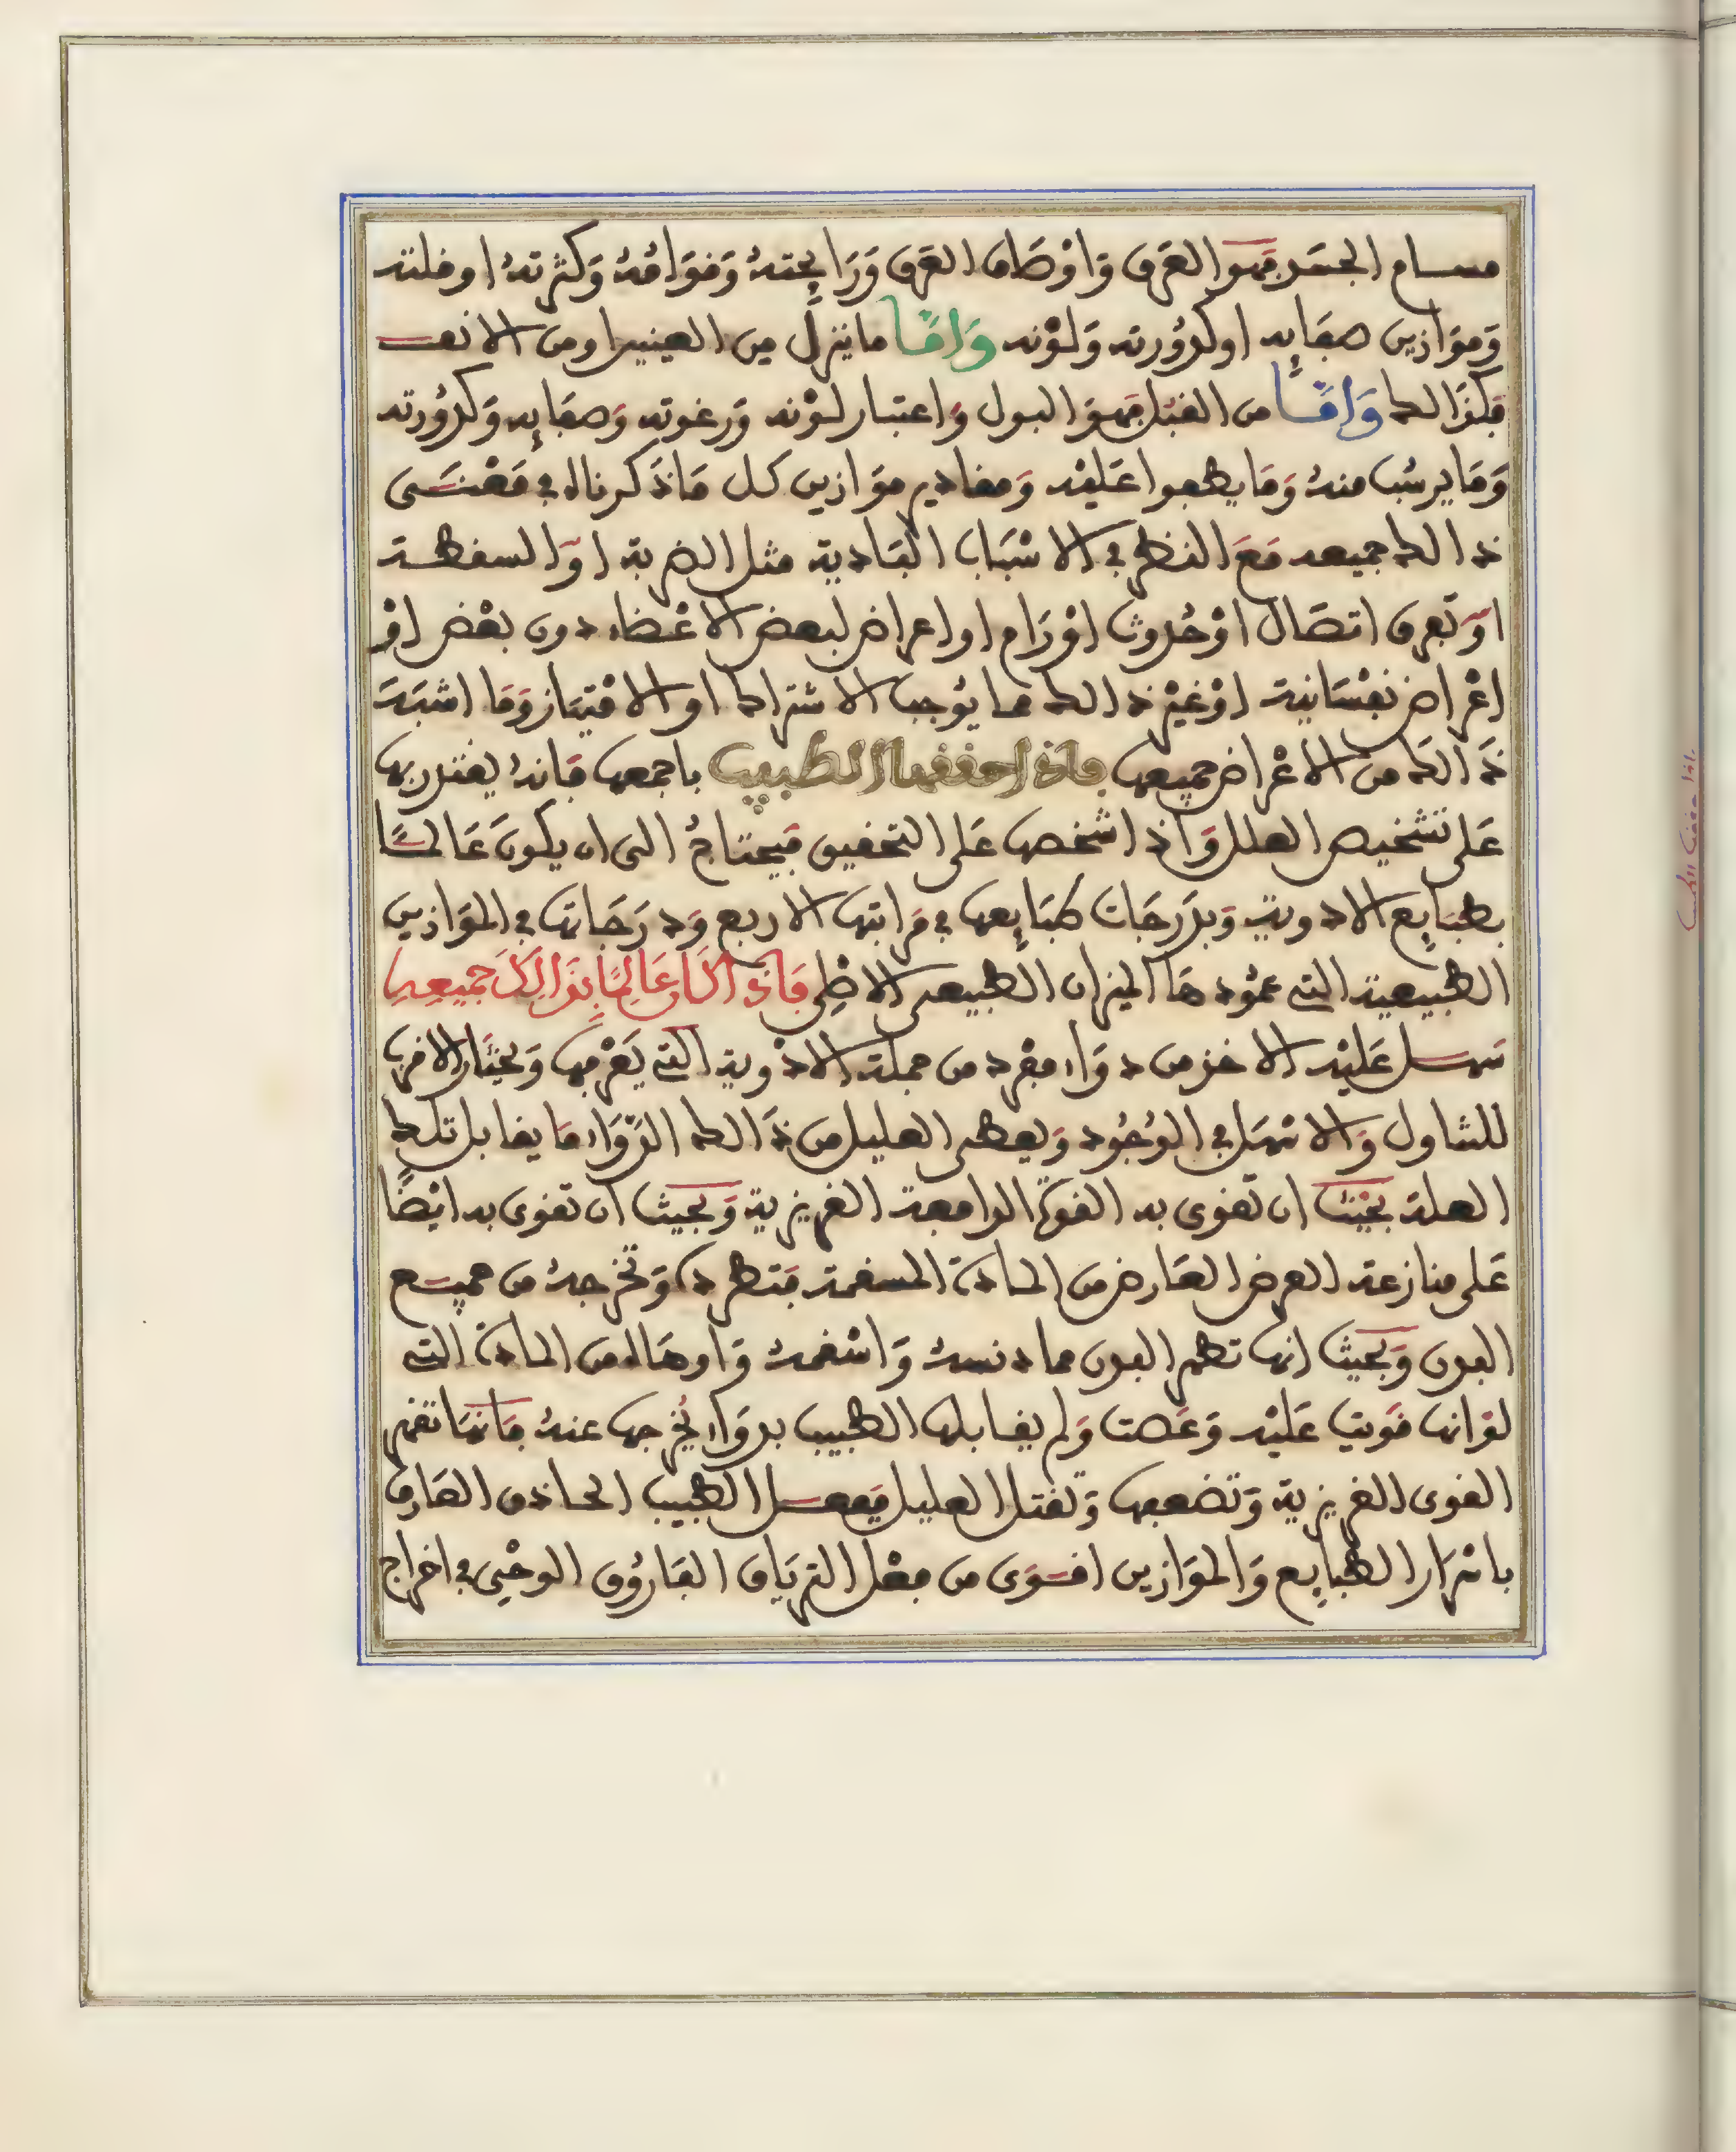 مسام الجسد فهو العرق وَاوْصَاف العرق وَرَايحتهُ وَقوَامهُ وَكثرتهُ او قلته
وَموَازين صفايه او كدُورته وَلوْنه وَامَّا ما ينزل من العينين او من الانف
فكذالك وَامَّا من القبُل فهوَ البول وَاعتبار لوْنه وَرغوته وَصفايه وَكدُورته
وَمَا يرسُب منهُ وَمَا يطفوا عَليْه وَمقادير موَازين كل مَا ذَكرناه في مَعْنـَى
ذالك جميعه مَعَ النظر في الاسْبَاب البَادية مثل الضربة اوِ السقطـة
اوْ تفرق اتصَال اوْ حُدوث اوْرَام او اعراض لبعض الاعْضاء دون بعْض اوْ
اعْراض نفسَانية اوْ غيْر ذالك مما يوُجب الاشتراك او الامْتياز وَمَا اشبَهَ
ذَالكَ من الاعْراض جميعها فاذا حققها الطبيب باجمعها فَانهُ يقتدر بها
عَلى تشخيص العلل وَاذا شخصها عَلى التحقيق فيَحتاجُ الى ان يكونَ عَالمـًا
بطبَايع الادوية وَبدَرجَات طبَايعها في مرَاتبها الاربع وَدرَجَاتها في الموَازين
الطبيعية التي عموُدهَا الميزان الطبيعى الاصْلى فَاذا كانَ عَالِمًا بِذَالِكَ جَمِيعِهِ
سَهـل عَليْه الاخذ من دوَاء مفرد من جملة الادْوية التي يَعْرفها وَيختَار الاقرب
للتناول وَالاسْهَل في الوُجُود وَيعطى العليل من ذَالك الدوَاء مَا يقابل تلك
العلة بحيْث ان تقوى به القوة الدافعة الغريزية وَبحيث ان تقوى به ايْضًا
عَلى منازعة العرض العَارض من المادة المسقمة فَتطرده وَتخرجهُ من جميـع
البدن وَبحيث انها تطهر البدن مما دنسهُ وَاسْقمهُ وَاوهَاه من المادة التي
لوَ انها قوَيت عَليْه وَعَصت وَلم يقابلها الطبيب بدوَاء يُخرجها عنهُ فَانهَا تقهر
القوى الغريزية وَتضعفها وَتقتل العليل ففعـل الطبيب الحاذق العَارف
باسْرَار الطبَايع وَالموَازين اقـوَى من فعْل الترياق الفَارُوق الوحْى في اخراج